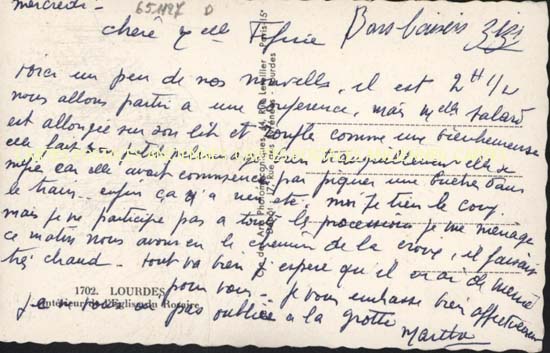 mercredi -
65.1127 D
chère Mlle
Bons baisers
voici un peu de nos nouvelles, il est 2H 1/2
nous allons partir a une conference, mais Mlle
est allongée sur son lit et comme une bienheureuse
elle fait son petit bien tranquillement elle se
car elle avait commencé par piquer une dans
le train - enfin ça n'a rien été. moi je tien le coup
mais je ne participe pas a toutes les processions je me ménage
ce matin nous avons eu le chemin de la croix, il faisait
très chaud - tout va bien j'espere qu'il en ai de meme
pour vous - je vous embrasse bien affectueusement
je ne vous ai pas oubliée a la grotte
Martha
1702. LOURDES
Intérieur de l'Eglise du Rosaire
Arts Photomécaniques, Rue Lemillier - Paris 15e